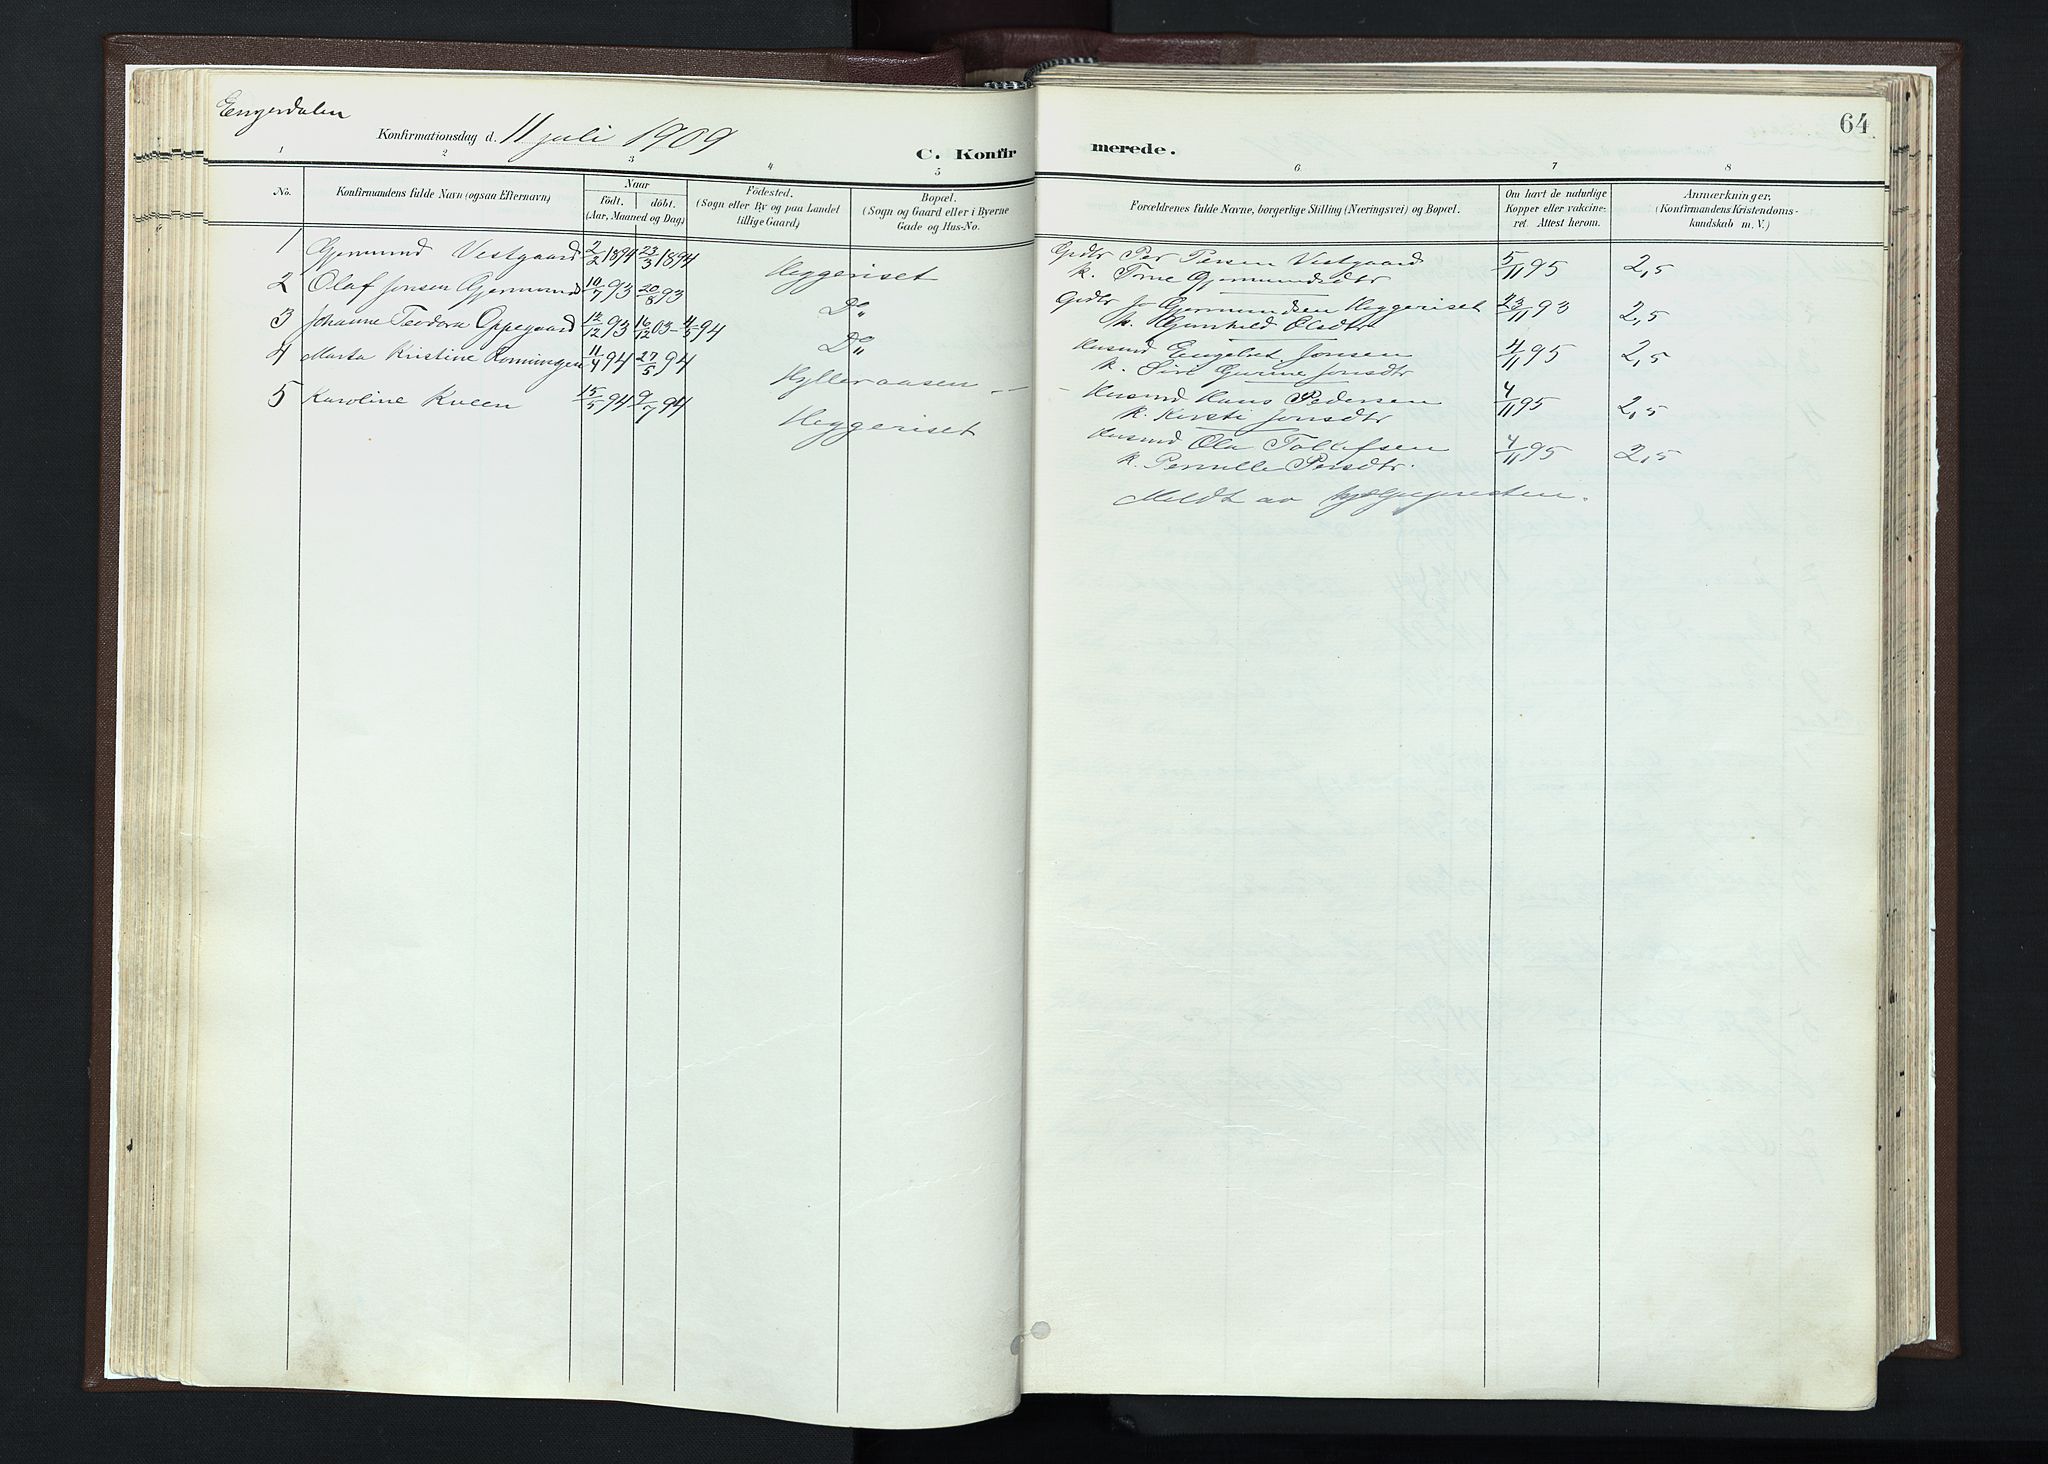 Engerdalen
Konfirmationsdag d. 11 juli 1909
64
C. Konfir
merede.
1 2 3 4 5
6 7 8
No.
Konfirmandens fulde Navn (ogsaa Efternavn)
Naar
födt. döbt.
(Aar, Maaned og Dag)
Födested.
(Sogn eller By og paa Landet
tillige Gaard)
Bopæl.
(Sogn og Gaard eller i Byerne
Gade og Hus-No.
Forældrenes fulde Navne, borgerlige Stilling (Næringsvei) og Bopæl.
Om havt de naturlige
Kopper eller vakcine-
ret. Attest herom.
Anmærkninger.
(Konfirmandens Kristendoms-
kundskab m. V.)
1 Gjermund Vestgaard 2/2 1894 23/3 1894 Heggeriset
2 Olaf Jonsen Gjermund 10/7 93 20/8 93 Do "
3 Johanne Teodora Oppegaard 12/12 93 16/12 03 - 4/5 94 Do "
4 Marta Kristine Ronningen 11/4 94 27/5 94 Hylleraasen -
5 Karoline Kveen 15/5 94 9/7 94 Heggeriset
Grdbr Per Persen Vestgaard 5/11 95 2,5
k. Trne Gjermundsdtr
Grdbr Jo Gjermundsen Heggeriset 23/11 93 2,5
k. Gunhild Olsdtr
Husmd Engebret Jonsen 4/11 95 2,5
k. Siri Gurine Jonsdtr
- Husmd Hans Pedersen 4/11 95 2,5
k. Kersti Jonsdtr
Husmd Ola Tollefsen 4/11 95 2,5
k. Pernille Persdtr.
Meldt av hjelpepresten.